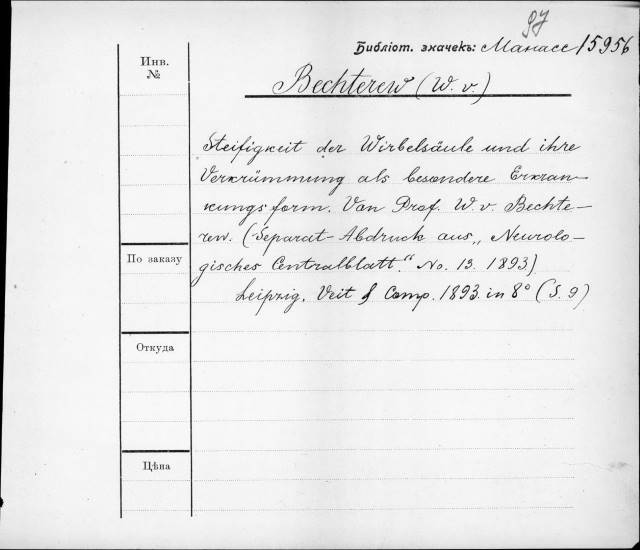 97
Библіот. значекъ: Манасс 15956
Инв.
№
Bechterew (W. v.)
Steifigkeit der Wirbelsäule und ihre
Verkrümmung als besondere Erkran-
kungsform. Von Prof. W. v. Bechte-
rew. (Separat-Abdruck aus „Neurolo-
По заказу
gisches Centralblatt." No. 13. 1893)
Leipzig. Veit & Comp. 1893. in 8° (S. 9)
Откуда
Цѣна